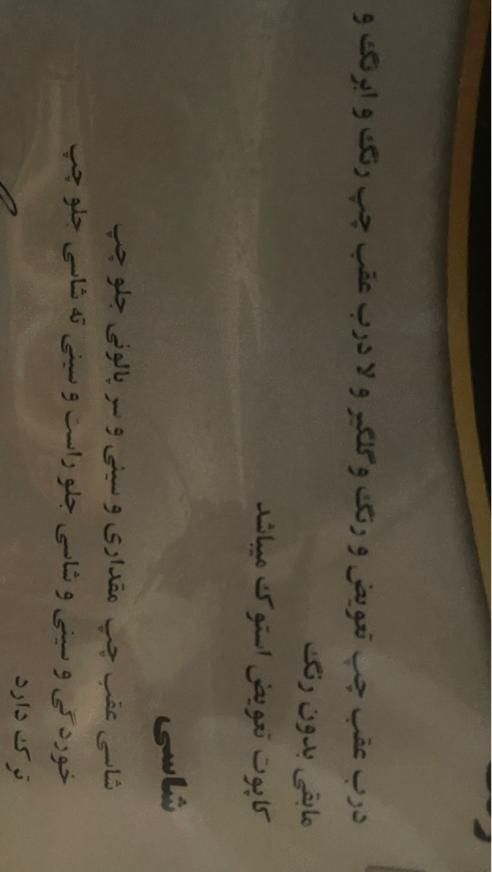 درب عقب چپ تعویض و رنگ و گلگیر و لا درب عقب چپ رنگ و ابرنگ و
مابقی بدون رنگ
کاپوت تعویض استوک میباشد
شاسی
شاسی عقب چپ مقداری و سینی و سر پالونی جلو چپ
خوردگی و سینی و شاسی جلو راست و سینی ته شاسی جلو چپ
ترک دارد